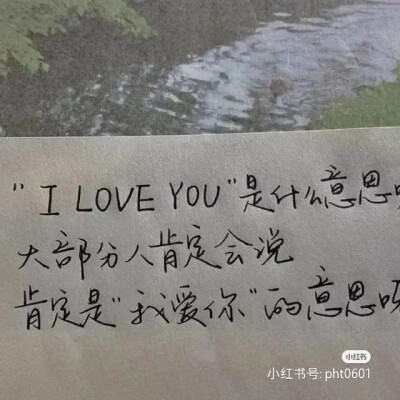 "I LOVE YOU"是什么意思
大部分人肯定会说
肯定是"我爱你"的意思呀
小红书
小红书号: pht0601